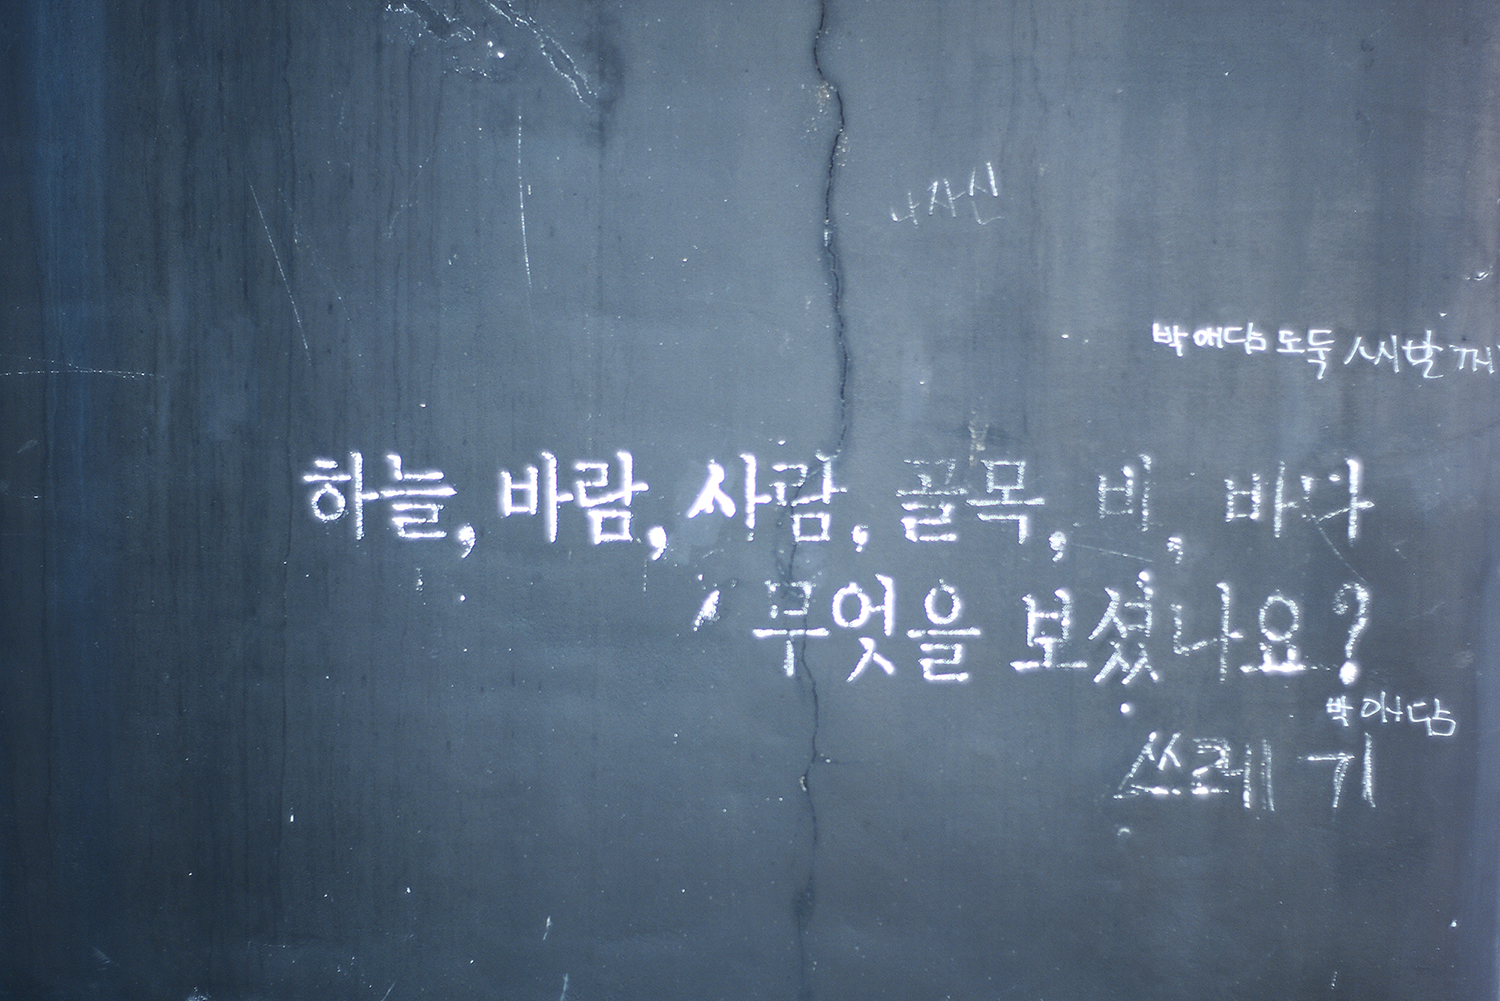 나 자신
박애담 도둑
하늘, 바람, 사람, 골목, 비, 바다
무엇을 보셨나요?
박애담
쓰레기